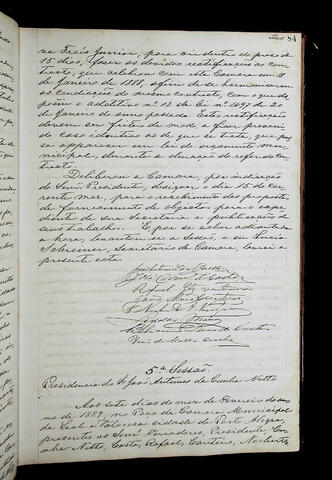 84
na Freis Junior, para vir dentro do praso de
15 dias, fazer as devidas rectificações ao con
tracto, que celebrou com esta Camara em
de Janeiro de 1888, afim de se harmonisarem
as condicções do mesmo contracto, com o que dis
poem o additivo nº 13 da lei nº 1697 de 20
de Janeiro do anno passado. Estas rectificações
devem ser feitas de modo a ficar preveni
do caso identico ao de que se trata, que pos
sa apparecer em lei de orçamento mu
nicipal, durante a duração do referido con
tracto.
Deliberou a Camara, por indicação
do Senr Presidente, designar o dia 15 do cor
rente mez, para o recebimento das propostas
de fornecimento de objectos para o expe
diente de sua Secretaria e publicação de
seus trabalhos. E por se achar adiantada
a hora, levantou-se a sessão, e eu
Schreiner, Secretario da Camara, lavrei a
presente acta.
5ª Sessão.
Presidencia do Sr João Antunes da Cunha Netto
Aos sete dias do mez de Fevereiro do an
no de 1889, no Paço da Camara Municipal
da Leal e Valorosa cidade de Porto Alegre,
presentes os Senrs Vereadores, Presidente, Cu
nha Netto, Costa, Rafael, Canteiro, Norberto,